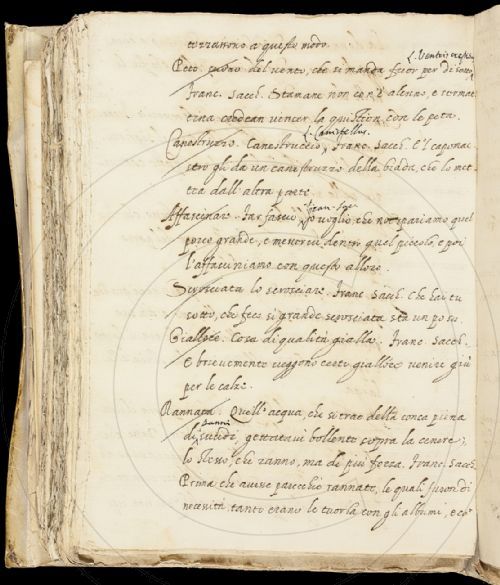 a questo modo.
L. Ventris crepitus
Peto. suono del vento, che si manda fuor per di sotto
Franc. Sacch. Stamane non con l'alenno, e
tina vincer la quistion con le peta.
L. Canistellus.
Canestruzzo. Canestruccio, Franc. Sacch. E 'l capomae
stro gli dà un canestruzzo della biada, che lo met
ta dall' altra parte.
Affascinare. Far fascio, Io voglio, che noi pariamo quel
porco grande, e mettervi dentro quel piccolo, e poi
l'affasciniamo con questo alloro.
Scrosciata lo scrosciare. Franc. Sacch. Che hai tu
sotto, che fece sì grande scrosciata sta un poco su
Giallore. Cosa di qualità gialla. Franc. Sacch.
E brievemente veggono certe giallore venire giù
per le calze.
Rannata. Quell' acqua, che si trae della conca piena
di panni sucidi, gettatavi bollente sopra la cenere,
lo stesso, che ranno, ma di più forza. Franc. Sacch.
Prima che avesse parecchie rannate, le quali furon di
necessità, tanto erano le tuorla con gli albumi, e co'